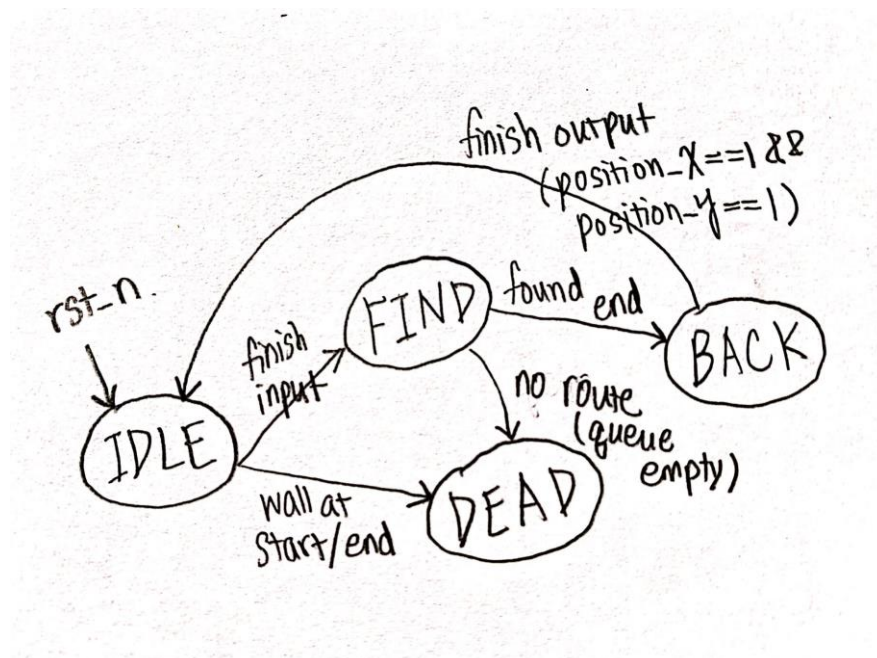 finish output
(position_X==1 &&
position_y==1)
rst_n.
finish
input
FIND
found
end
BACK
IDLE
no route
(queue
empty)
wall at
start/end
DEAD